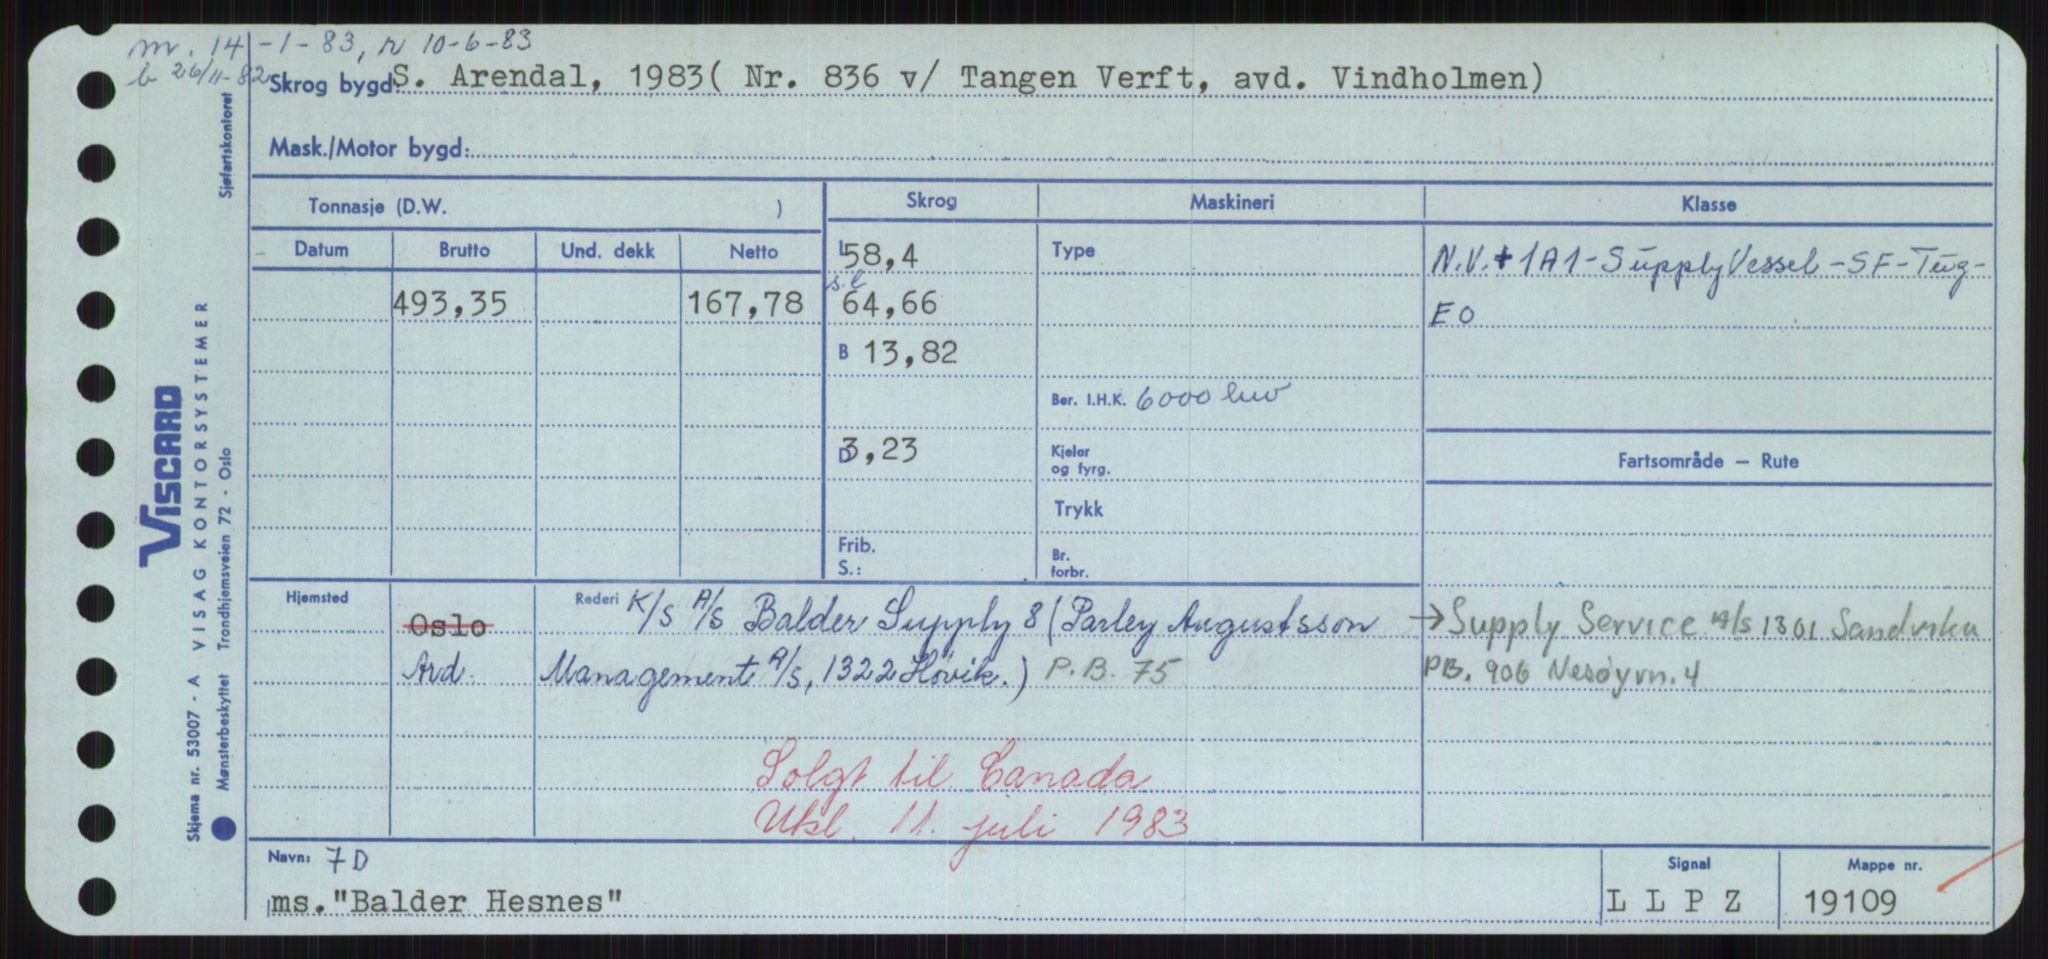 m. 14-1-83, r 10-6-83
b 26/11-82
Skrog bygd: S. Arendal, 1983( Nr. 836 v/ Tangen Verft, avd. Vindholmen)
Mask./Motor bygd:
Sjøfartskontoret
Tonnasje (D.W. )
Skrog
Maskineri
Klasse
Datum
Brutto
Und. dekk
Netto
L 58,4
Type
N.V. + 1A1 - Supply Vessel - SF - Tug -
493,35
167,78
s.l
64,66
EO
B 13,82
Ber. I.H.K. 6000
D 3,23
Kjeler
og fyrg.
Fartsområde — Rute
Trykk
Frib.
S.:
Br.
forbr.
Hjemsted
Oslo
Rederi K/S A/S Balder Supply 8 (Parley Augustsson → Supply Service A/S 1301 Sandvika
Ard
Management A/s, 1322 Høvik.) P.B. 75
PB. 906 Nesøyvn. 4
Solgt til Canada
Utsl. 11. juli 1983
Navn: 7D
ms. "Balder Hesnes"
Signal
L L P Z
Mappe nr.
19109
VISCARD
VISAG KONTORSYSTEMER
Skjema nr. 53007 - A
Mønsterbeskyttet
Trondhjemsveien 72 - Oslo